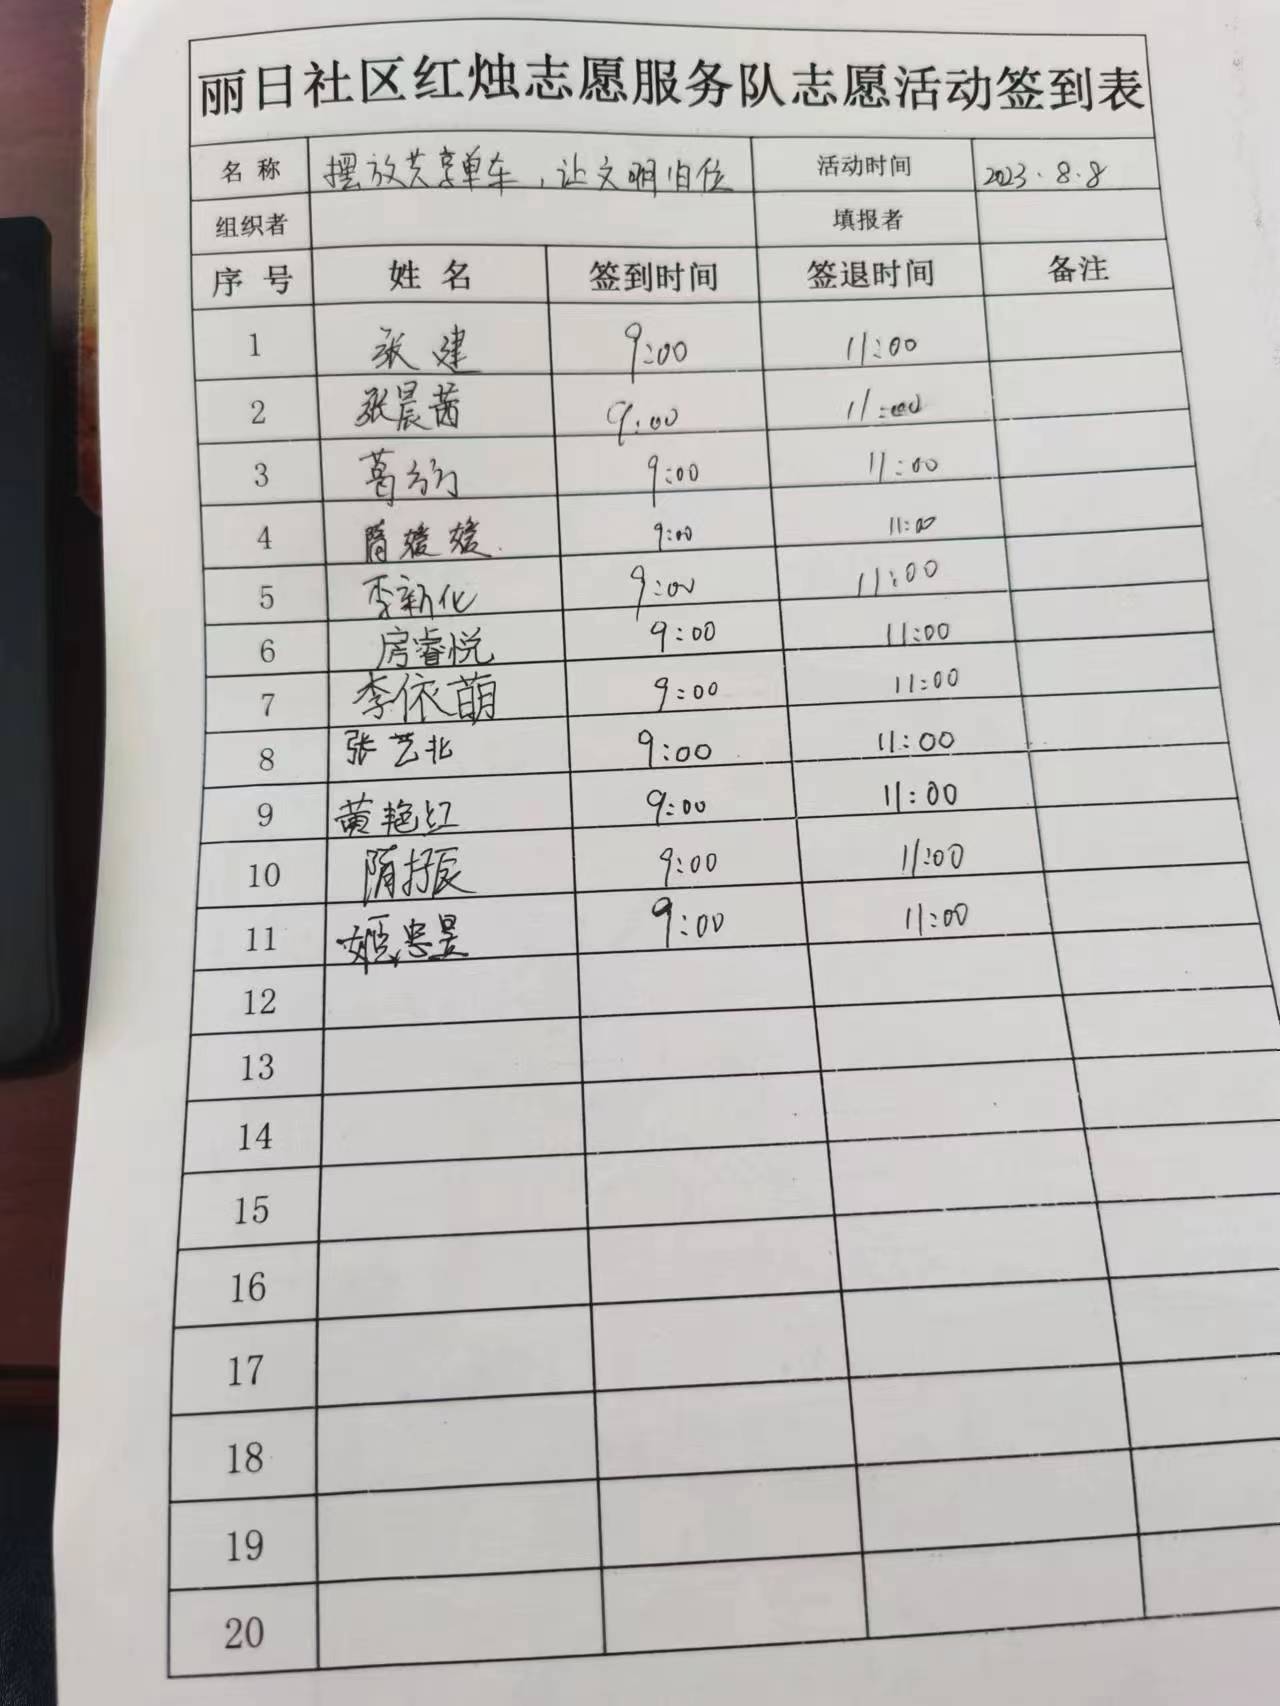 丽日社区红烛志愿服务队志愿活动签到表
名称 摆放共享单车，让文明归位 活动时间 2023.8.8
组织者 填报者
序号 姓名 签到时间 签退时间 备注
1 张建 9:00 11:00
2 张晨茜 9:00 11:00
3 葛 9:00 11:00
4 隋媛媛 9:00 11:00
5 李新化 9:00 11:00
6 房睿悦 9:00 11:00
7 李依萌 9:00 11:00
8 张艺北 9:00 11:00
9 黄艳红 9:00 11:00
10 隋抒辰 9:00 11:00
11 姬忠昱 9:00 11:00
12
13
14
15
16
17
18
19
20